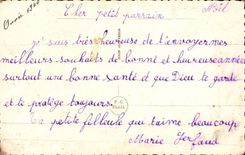 Noël
Cher petit parrain
Je suis très heureuse de t'envoyer mes
meilleurs souhaits de bonne et heureuse année
surtout une bonne santé et que Dieu te garde
et te protège toujours.
Ta petite filleule qui t'aime beaucoup
Marie